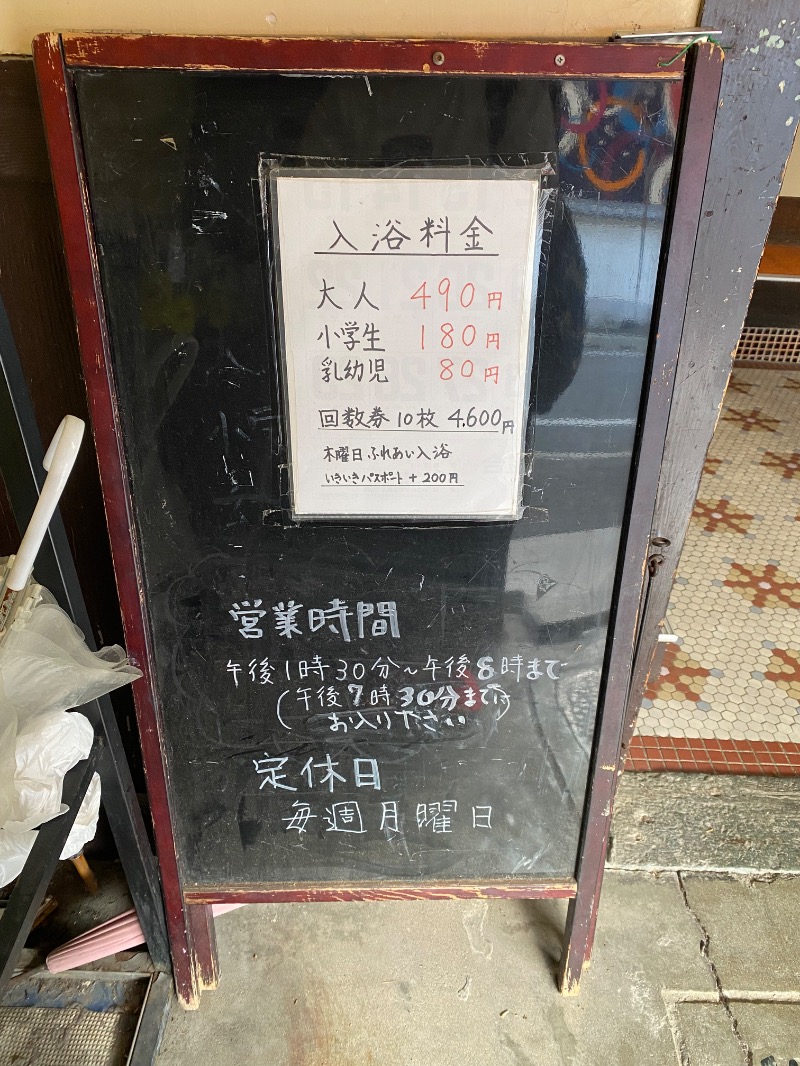 入浴料金
大人 490円
小学生 180円
乳幼児 80円
回数券10枚 4,600円
木曜日ふれあい入浴
いきいきパスポート+200円
営業時間
午後1時30分~午後8時まで
(午後7時30分までに
お入り下さい)
定休日
毎週月曜日